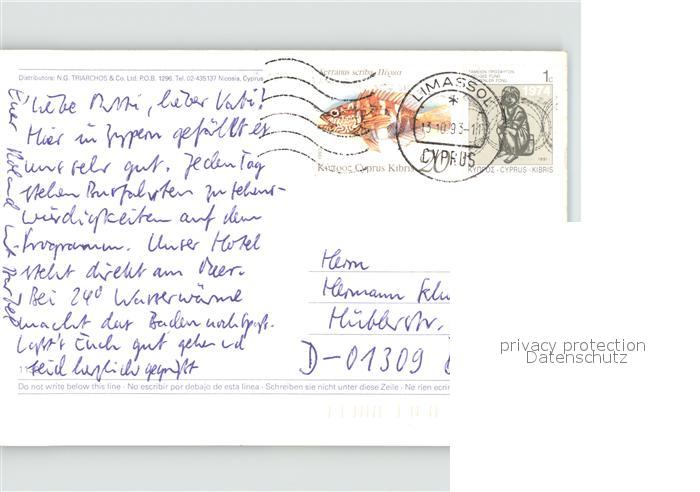 Distributors: N.G. TRIARCHOS & Co. Ltd. P.O.B. 1296. Tel. 02-435137 Nicosia, Cyprus
Serranus scriba Πέρκα
Κύπρος Cyprus Kibris 20
1c
1974
ΚΥΠΡΟΣ·CYPRUS·KIBRIS
1991
LIMASSOL
13.10.93
CYPRUS
Liebe Mutti, lieber Vati!
Hier in Zypern gefällt es
uns sehr gut. Jeden Tag
stehen Busfahrten zu Sehens-
würdigkeiten auf dem
Programm. Unser Hotel
steht direkt am Meer.
Bei 24° Wasserwärme
macht das Baden noch Spaß.
Laßt's Euch gut gehen u
seid herzlich gegrüßt
Euer Roland
Herrn
Hermann
Hüblerstr.
D-01309
Do not write below this line - No escribir por debajo de esta linea - Schreiben sie nicht unter diese Zeile - Ne rien ecrir
privacy protection
Datenschutz